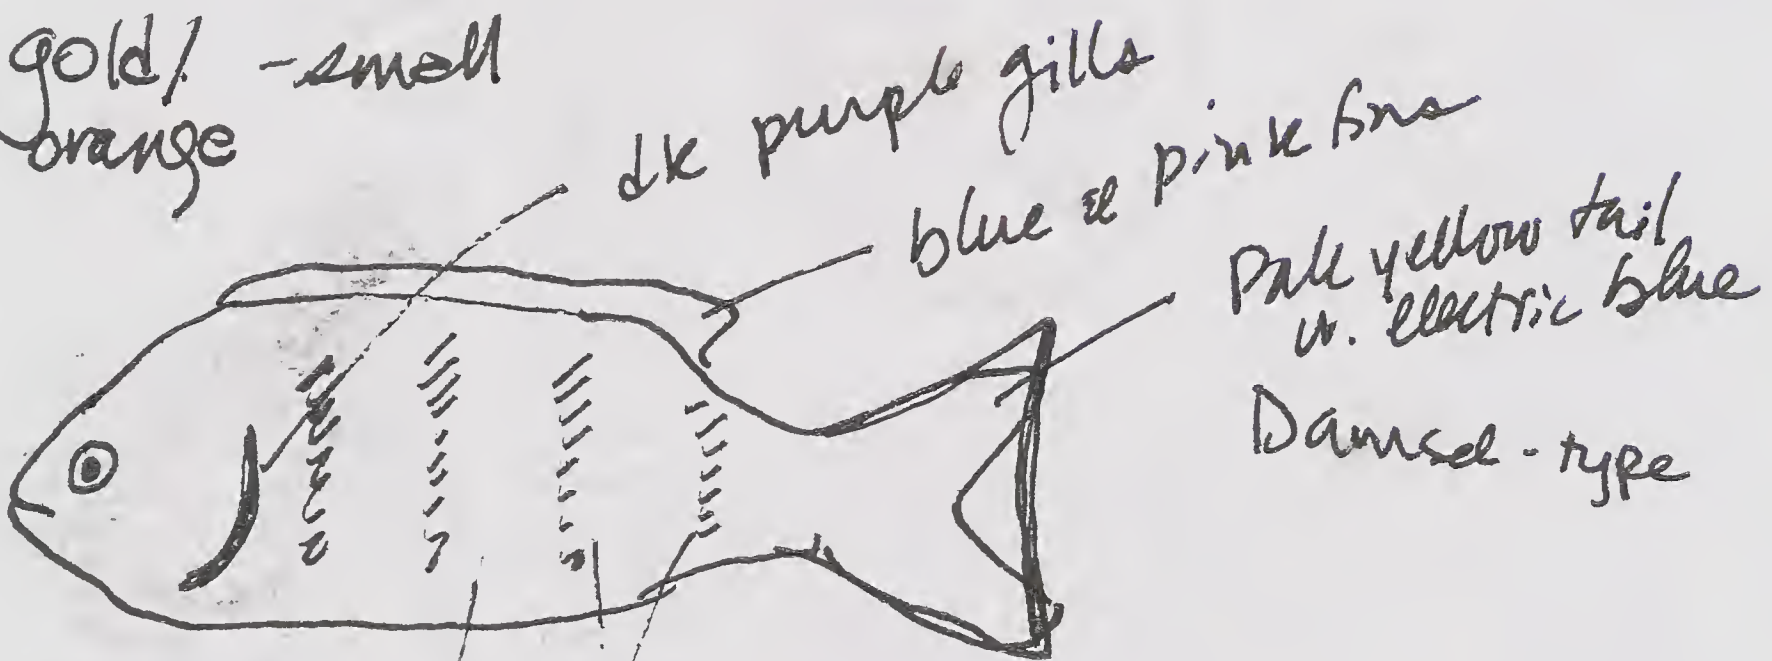 gold/ - small
orange
dk purple gills
blue & pink fins
Pale yellow tail
w. electric blue
Damsel-type